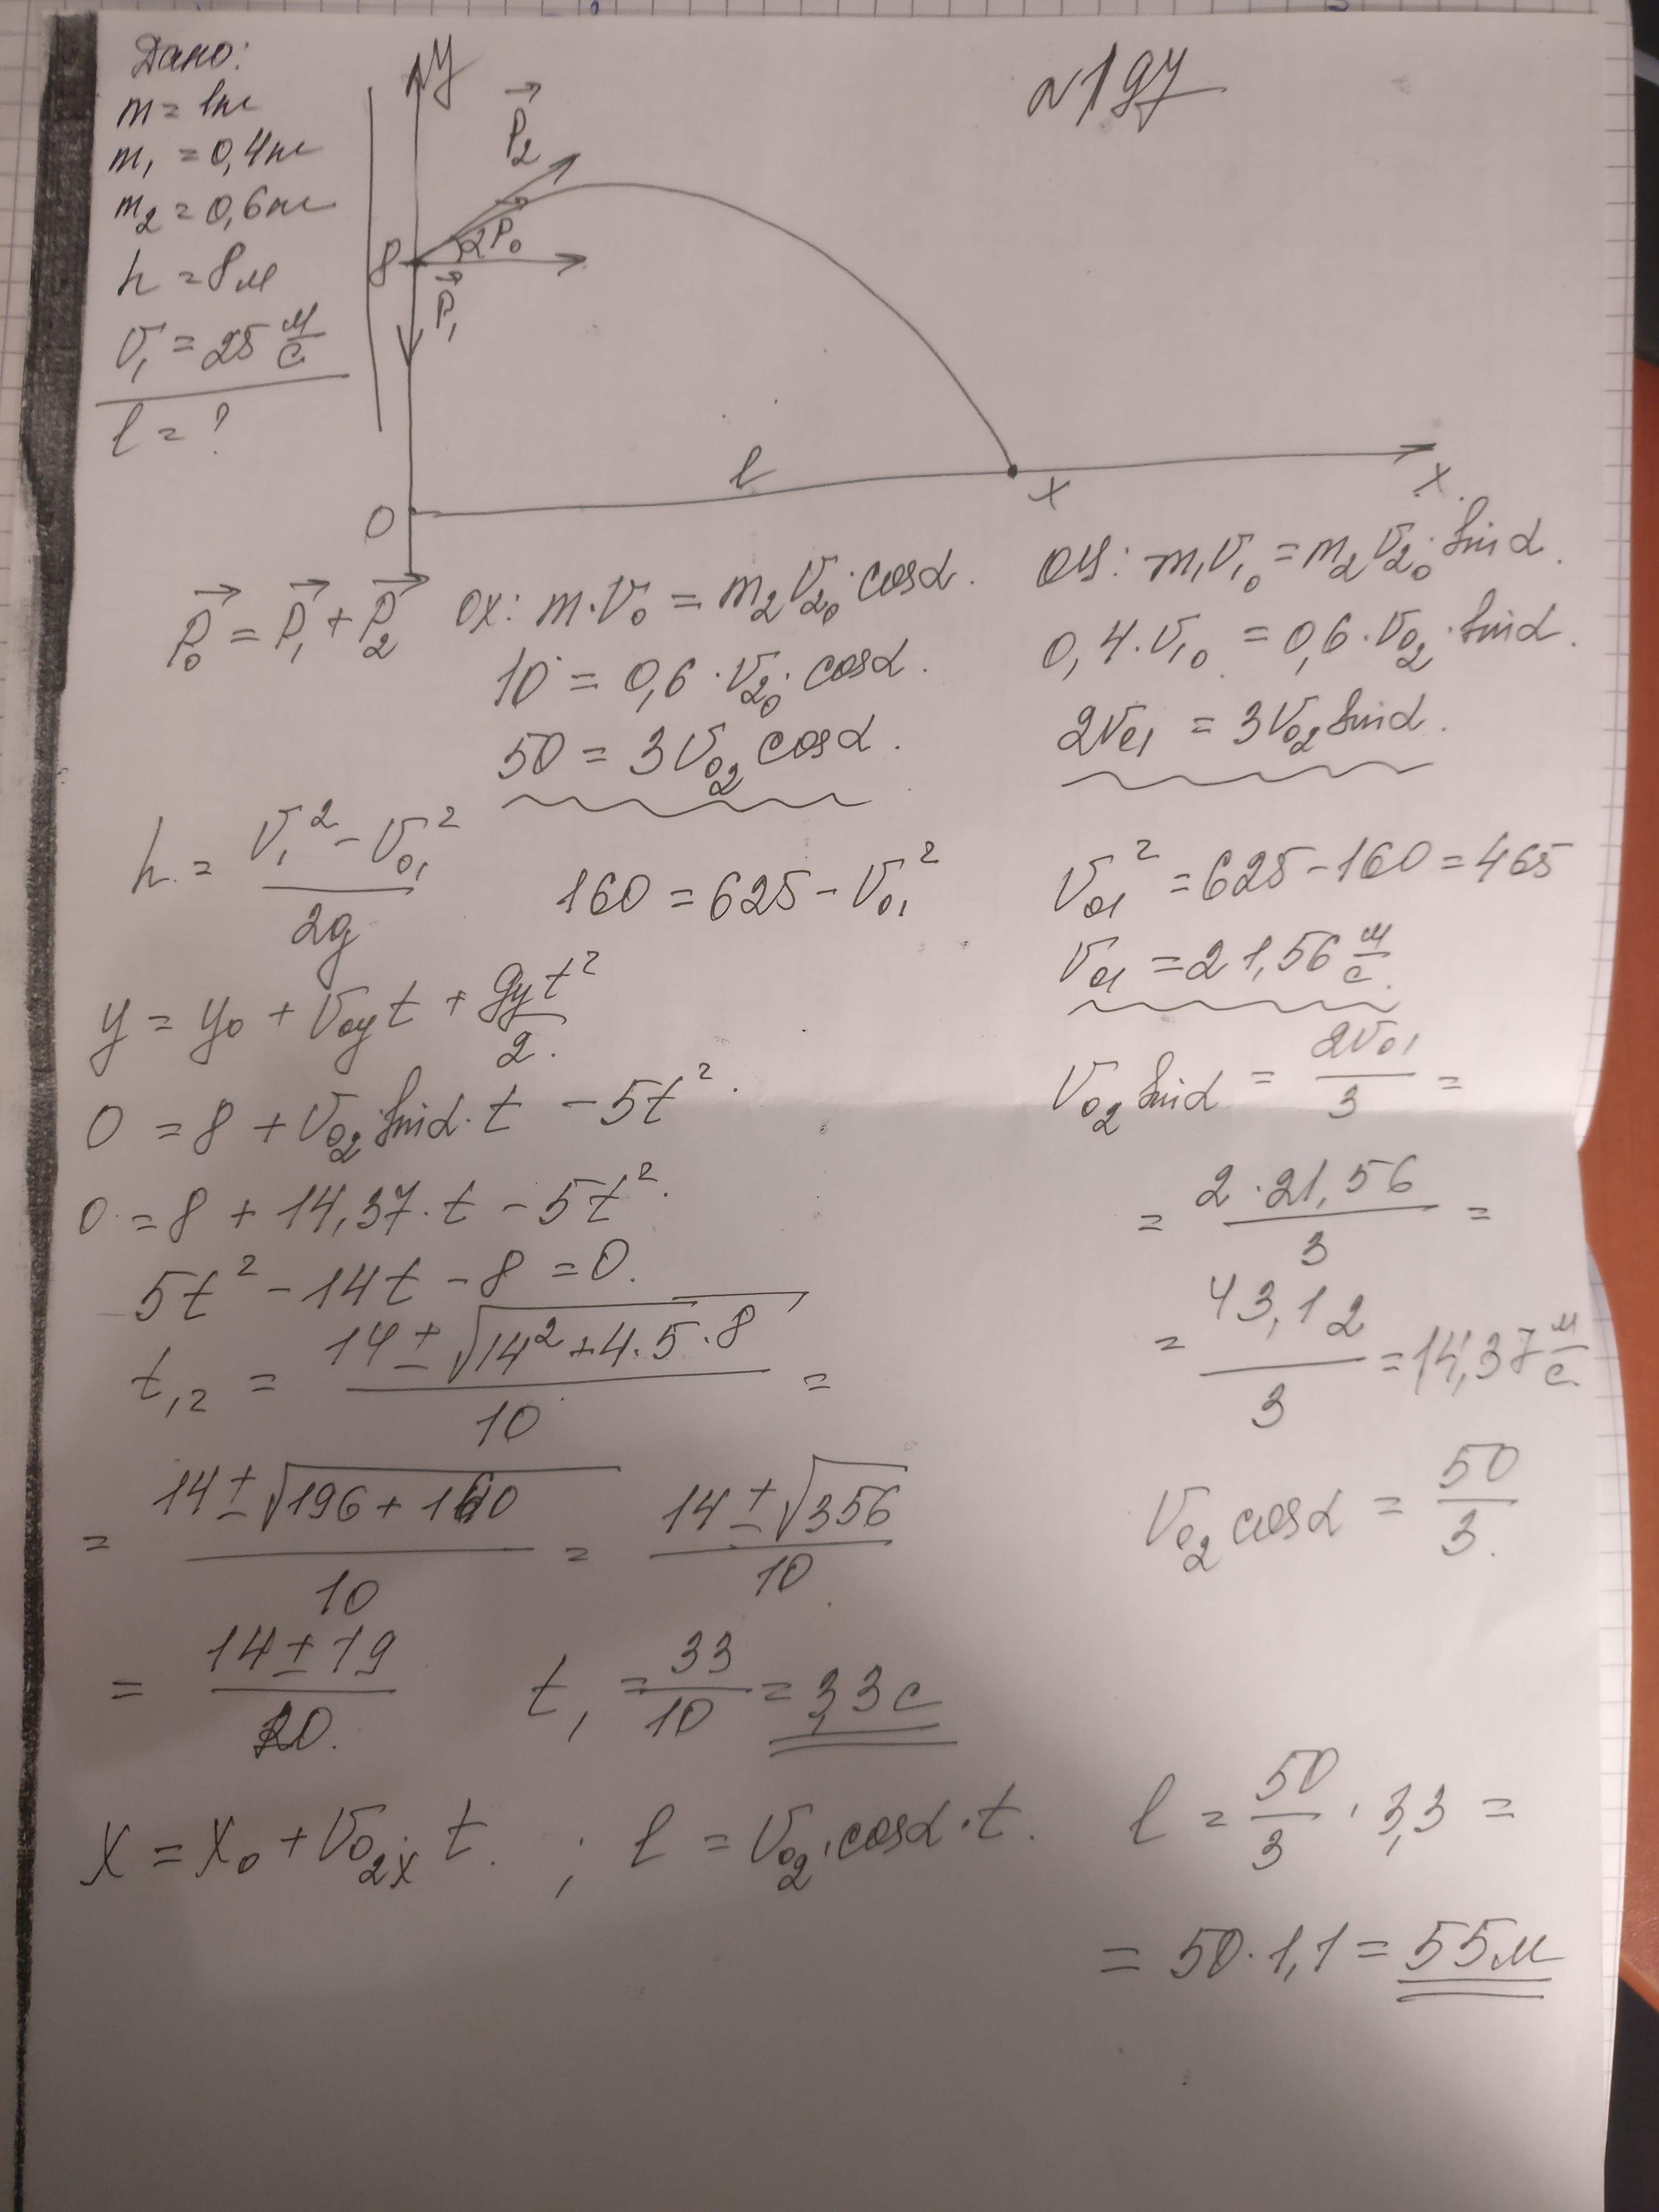 Дано:
m = 1кг
m₁ = 0,4кг
m₂ = 0,6кг
h = 8м
V₁ = 25 м/с
l = ?
y
P₂
α P₀
8
P₁
l
0
x
x
P₀ = P₁ + P₂
ox: m·V₀ = m₂V₂₀·cosα.
10 = 0,6·V₂₀·cosα.
50 = 3V₀₂cosα.
oy: m₁V₁₀ = m₂V₂₀·sinα.
0,4·V₁₀ = 0,6·V₀₂·sinα.
2V₀₁ = 3V₀₂sinα.
h = (V₁² - V₀₁²)/2g
160 = 625 - V₀₁²
V₀₁² = 625 - 160 = 465
V₀₁ = 21,56 м/с.
y = y₀ + V₀yt + gyt²/2.
0 = 8 + V₀₂sinα·t - 5t².
0 = 8 + 14,37·t - 5t².
5t² - 14t - 8 = 0.
t₁,₂ = (14 ± √(14² + 4·5·8))/10 =
= (14 ± √(196 + 160))/10 = (14 ± √356)/10
= (14 ± 19)/10. t₁ = 33/10 = 3,3с
V₀₂sinα = 2V₀₁/3 =
= 2·21,56/3 =
= 43,12/3 = 14,37 м/с
V₀₂cosα = 50/3.
x = x₀ + V₀₂ₓt. ; l = V₀₂·cosα·t. l = 50/3 · 3,3 =
= 50·1,1 = 55м